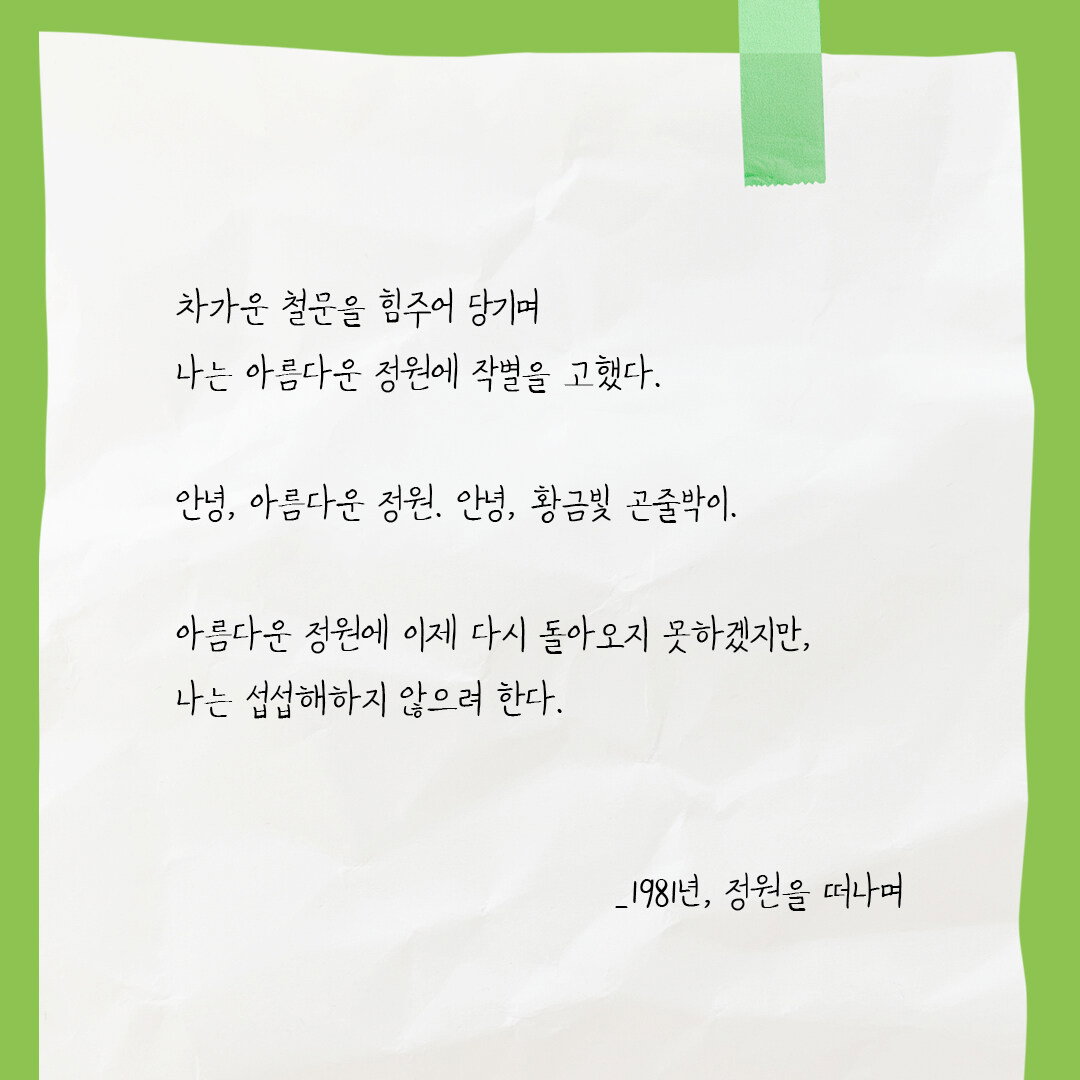 차가운 철문을 힘주어 당기며
나는 아름다운 정원에 작별을 고했다.
안녕, 아름다운 정원. 안녕, 황금빛 곤줄박이.
아름다운 정원에 이제 다시 돌아오지 못하겠지만,
나는 섭섭해하지 않으려 한다.
_1981년, 정원을 떠나며